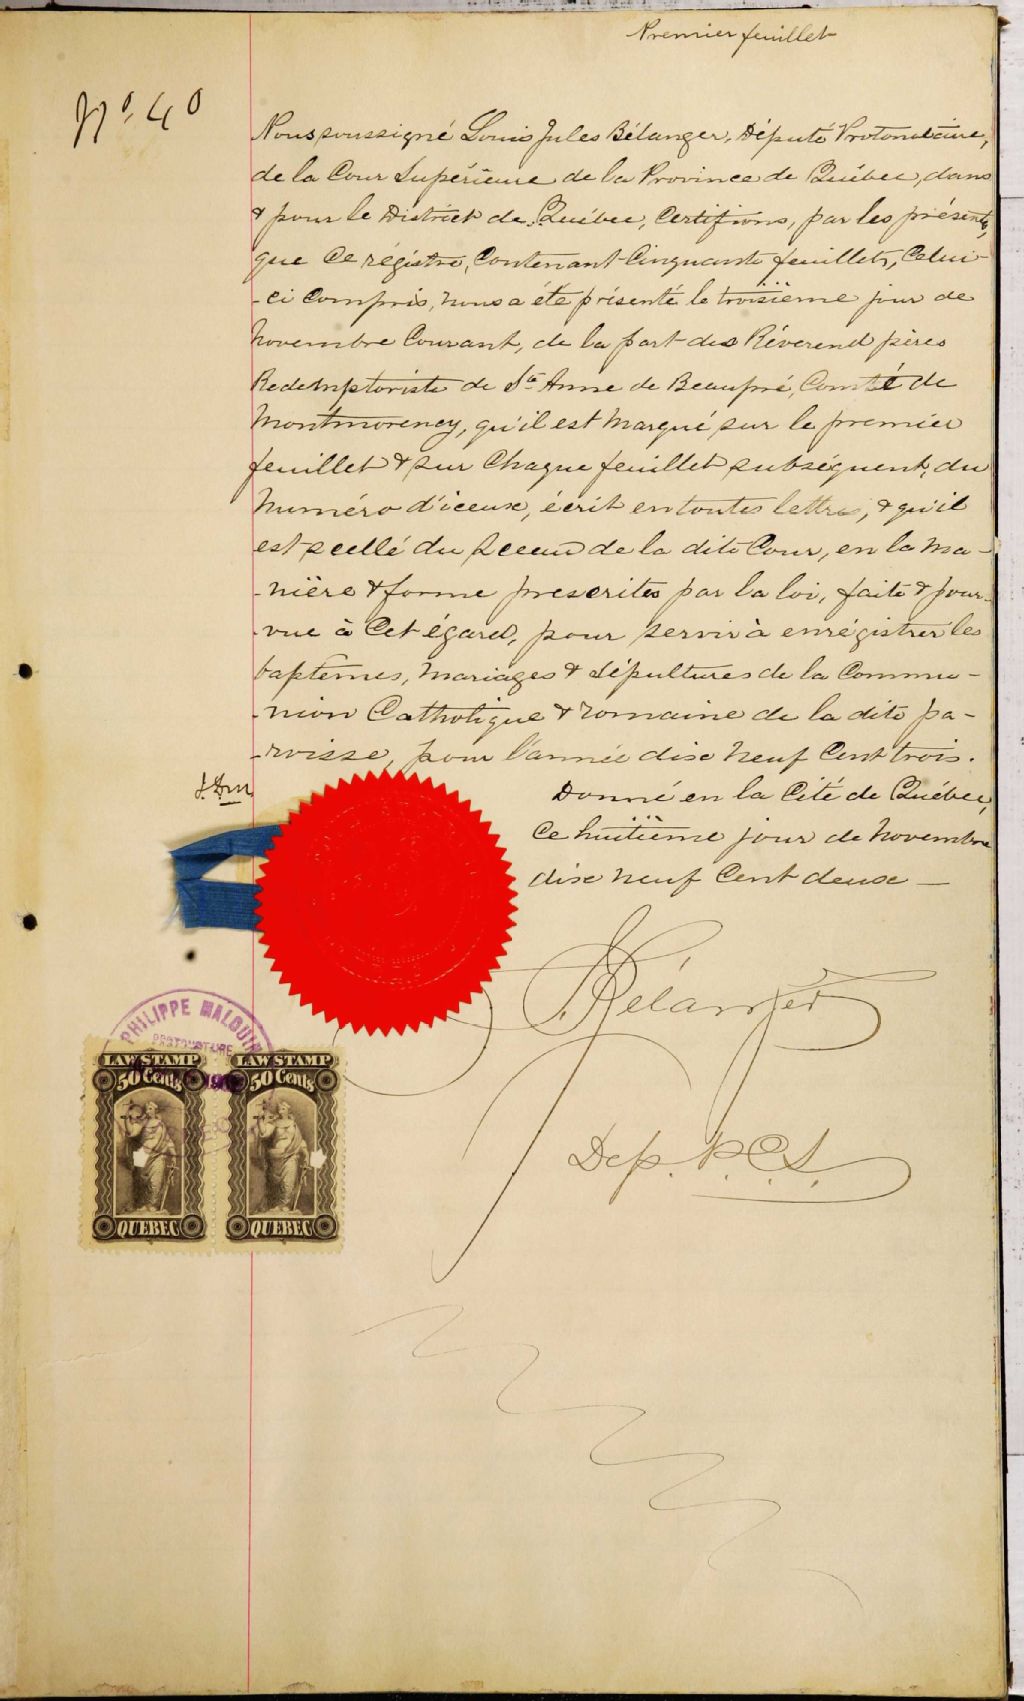 Premier feuillet
No. 40
Nous soussigné Louis Jules Bélanger, Député Protonotaire,
de la Cour Supérieure de la Province de Québec, dans
& pour le District de Québec, Certifions, par les présents,
que Ce régistre, Contenant Cinquante feuillets, Celui-
-ci Compris, nous a été présenté le troisième jour de
Novembre Courant, de la part des Révérend pères
Redemptoriste de Ste Anne de Beaupré, Comté de
Montmorency, qu'il est Marqué sur le premier
feuillet & sur Chaque feuillet subséquent, du
Numéro d'iceux, écrit en toutes lettres, & qu'il
est scellé du Sceau de la dite Cour, en la Ma-
-nière & forme prescrites par la loi, faite & pour-
-vue à Cet égard, pour servir à enrégistrer les
baptêmes, Mariages & Sépultures de la Commu-
-nion Catholique & romaine de la dite pa-
-roisse, pour l'année dix neuf Cent trois.
Donné en la Cité de Québec,
Ce huitième jour de Novembre
dix neuf Cent deux —
LJBélanger
Dép. P.C.S.
PHILIPPE MALOUIN
PROTONOTAIRE
LAW STAMP LAW STAMP
50 Cents 50 Cents
QUEBEC QUEBEC